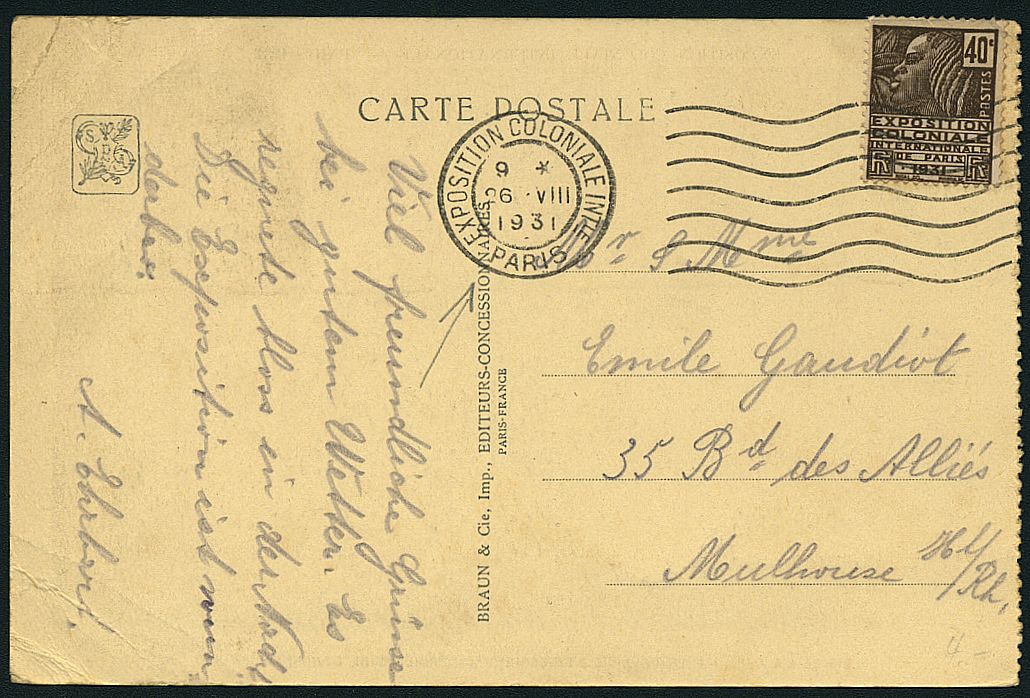 CARTE POSTALE
EXPOSITION COLONIALE INTLE
9 *
26 · VIII
1931
PARIS
40c
POSTES
EXPOSITION
COLONIALE
INTERNATIONALE
DE PARIS
1931
Viel freundliche Grüsse
bei gutem Wetter. Es
regnete bloss in der Nacht
Die Exposition ist wun-
derbar.
A. Ehrbart.
BRAUN & Cie, Imp., EDITEURS-CONCESSIONNAIRES
PARIS-FRANCE
Mr & Mme
Emile Gaudiot
35 Bd des Alliés
Mulhouse Ht/Rh.
4.-